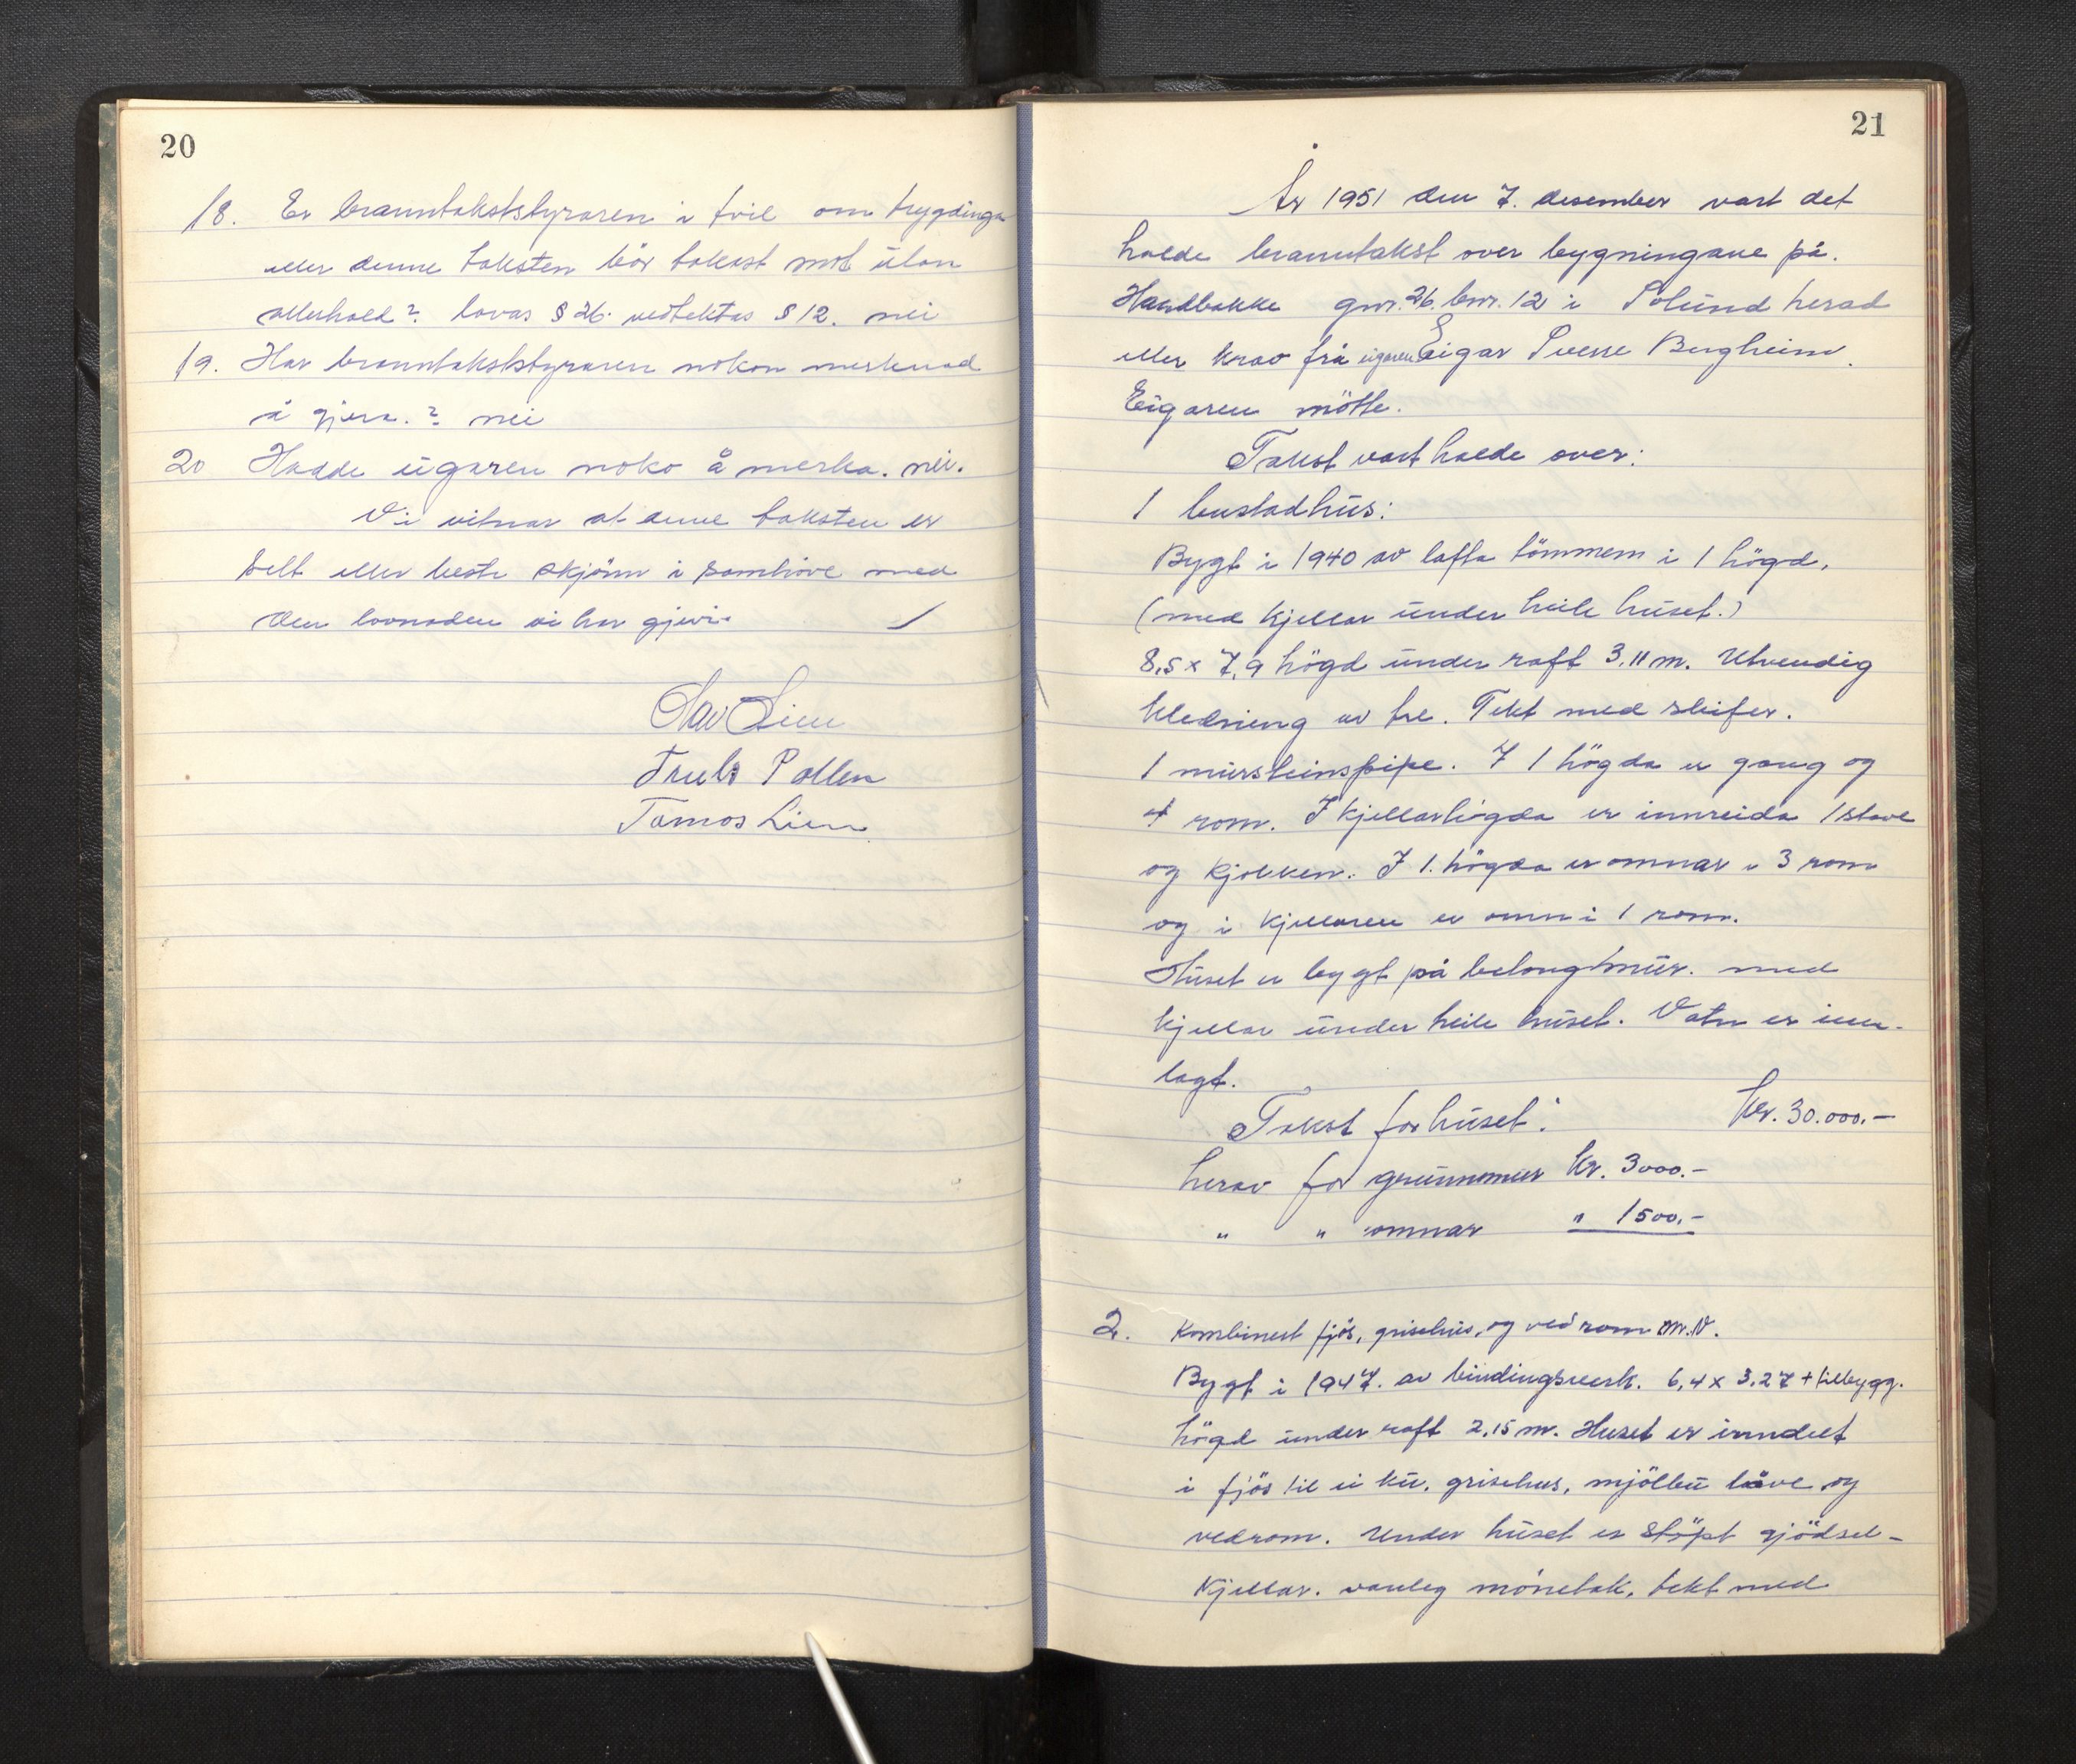 20
18. Er branntakststyraren i tvil om trygdinga
etter denne taksten bör takast mot utan
atterhald? lovas § 26. vedtektas § 12. nei
19. Har branntakststyraren nokon merknad
å gjera.? nei
20 Hadde eigaren noko å merka. nei.
Vi vitnar at denne taksten er
sett etter beste skjönn i samhöve med
den lovnaden vi har gjevi.
Olav Lien
Truls Pallen
Tomas Lien
21
År 1951 den 7. desember vart det
halde branntakst over bygningane på.
Handbakke gnr. 26. bnr. 12 i Solund herad
etter krav frå eigaren Eigar Sverre Bergheim.
Eigaren mötte.
Takst vart halde over:
1 bustadhus:
Bygt i 1940 av lafta tömmem i 1 högd.
(med kjellar under heile huset.)
8,5 x 7,9 högd under raft 3,11 m. Utvendig
kledning av tre. Tekt med skifer.
1 mursteinspipe. I 1 högda er gang og
4 rom. I kjellarhögda er innreida 1 stove
og kjökken. I 1. högda er omnar i 3 rom
og i kjellaren er omn i 1 rom.
Huset er bygt på betongmur. med
kjellar under heile huset. Vatn er inn-
lagt.
Takst for huset: Kr. 30.000.-
herav for grunnmur kr. 3000.-
" " omnar " 1500.-
2. Kombinert fjös, grisehus, og vedrom m.v.
Bygt i 1947. av bindingsverk. 6,4 x 3,27 + tilbygg.
högd under raft 2,15 m. Huset er inndelt
i fjös til ei ku. grisehus, mjölbu låve og
vedrom. Under huset er stöpt gjödsel-
kjellar. vanleg mönetak, tekt med